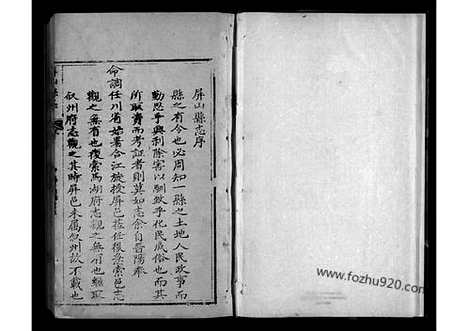 屏山縣志序
縣之有令也必周知一縣之土地人民政事而
勤思乎興利除害以馴致乎化民成俗也而其
所取資而考証者則莫如志余自晉陽奉
命調任川省始署合江旋授屏邑蒞任後急索邑志
觀之無有也復索馬湖府志觀之無有也繼取
叙州府志觀之其時屏邑未屬叙州故不載也
www.fozhu920.com